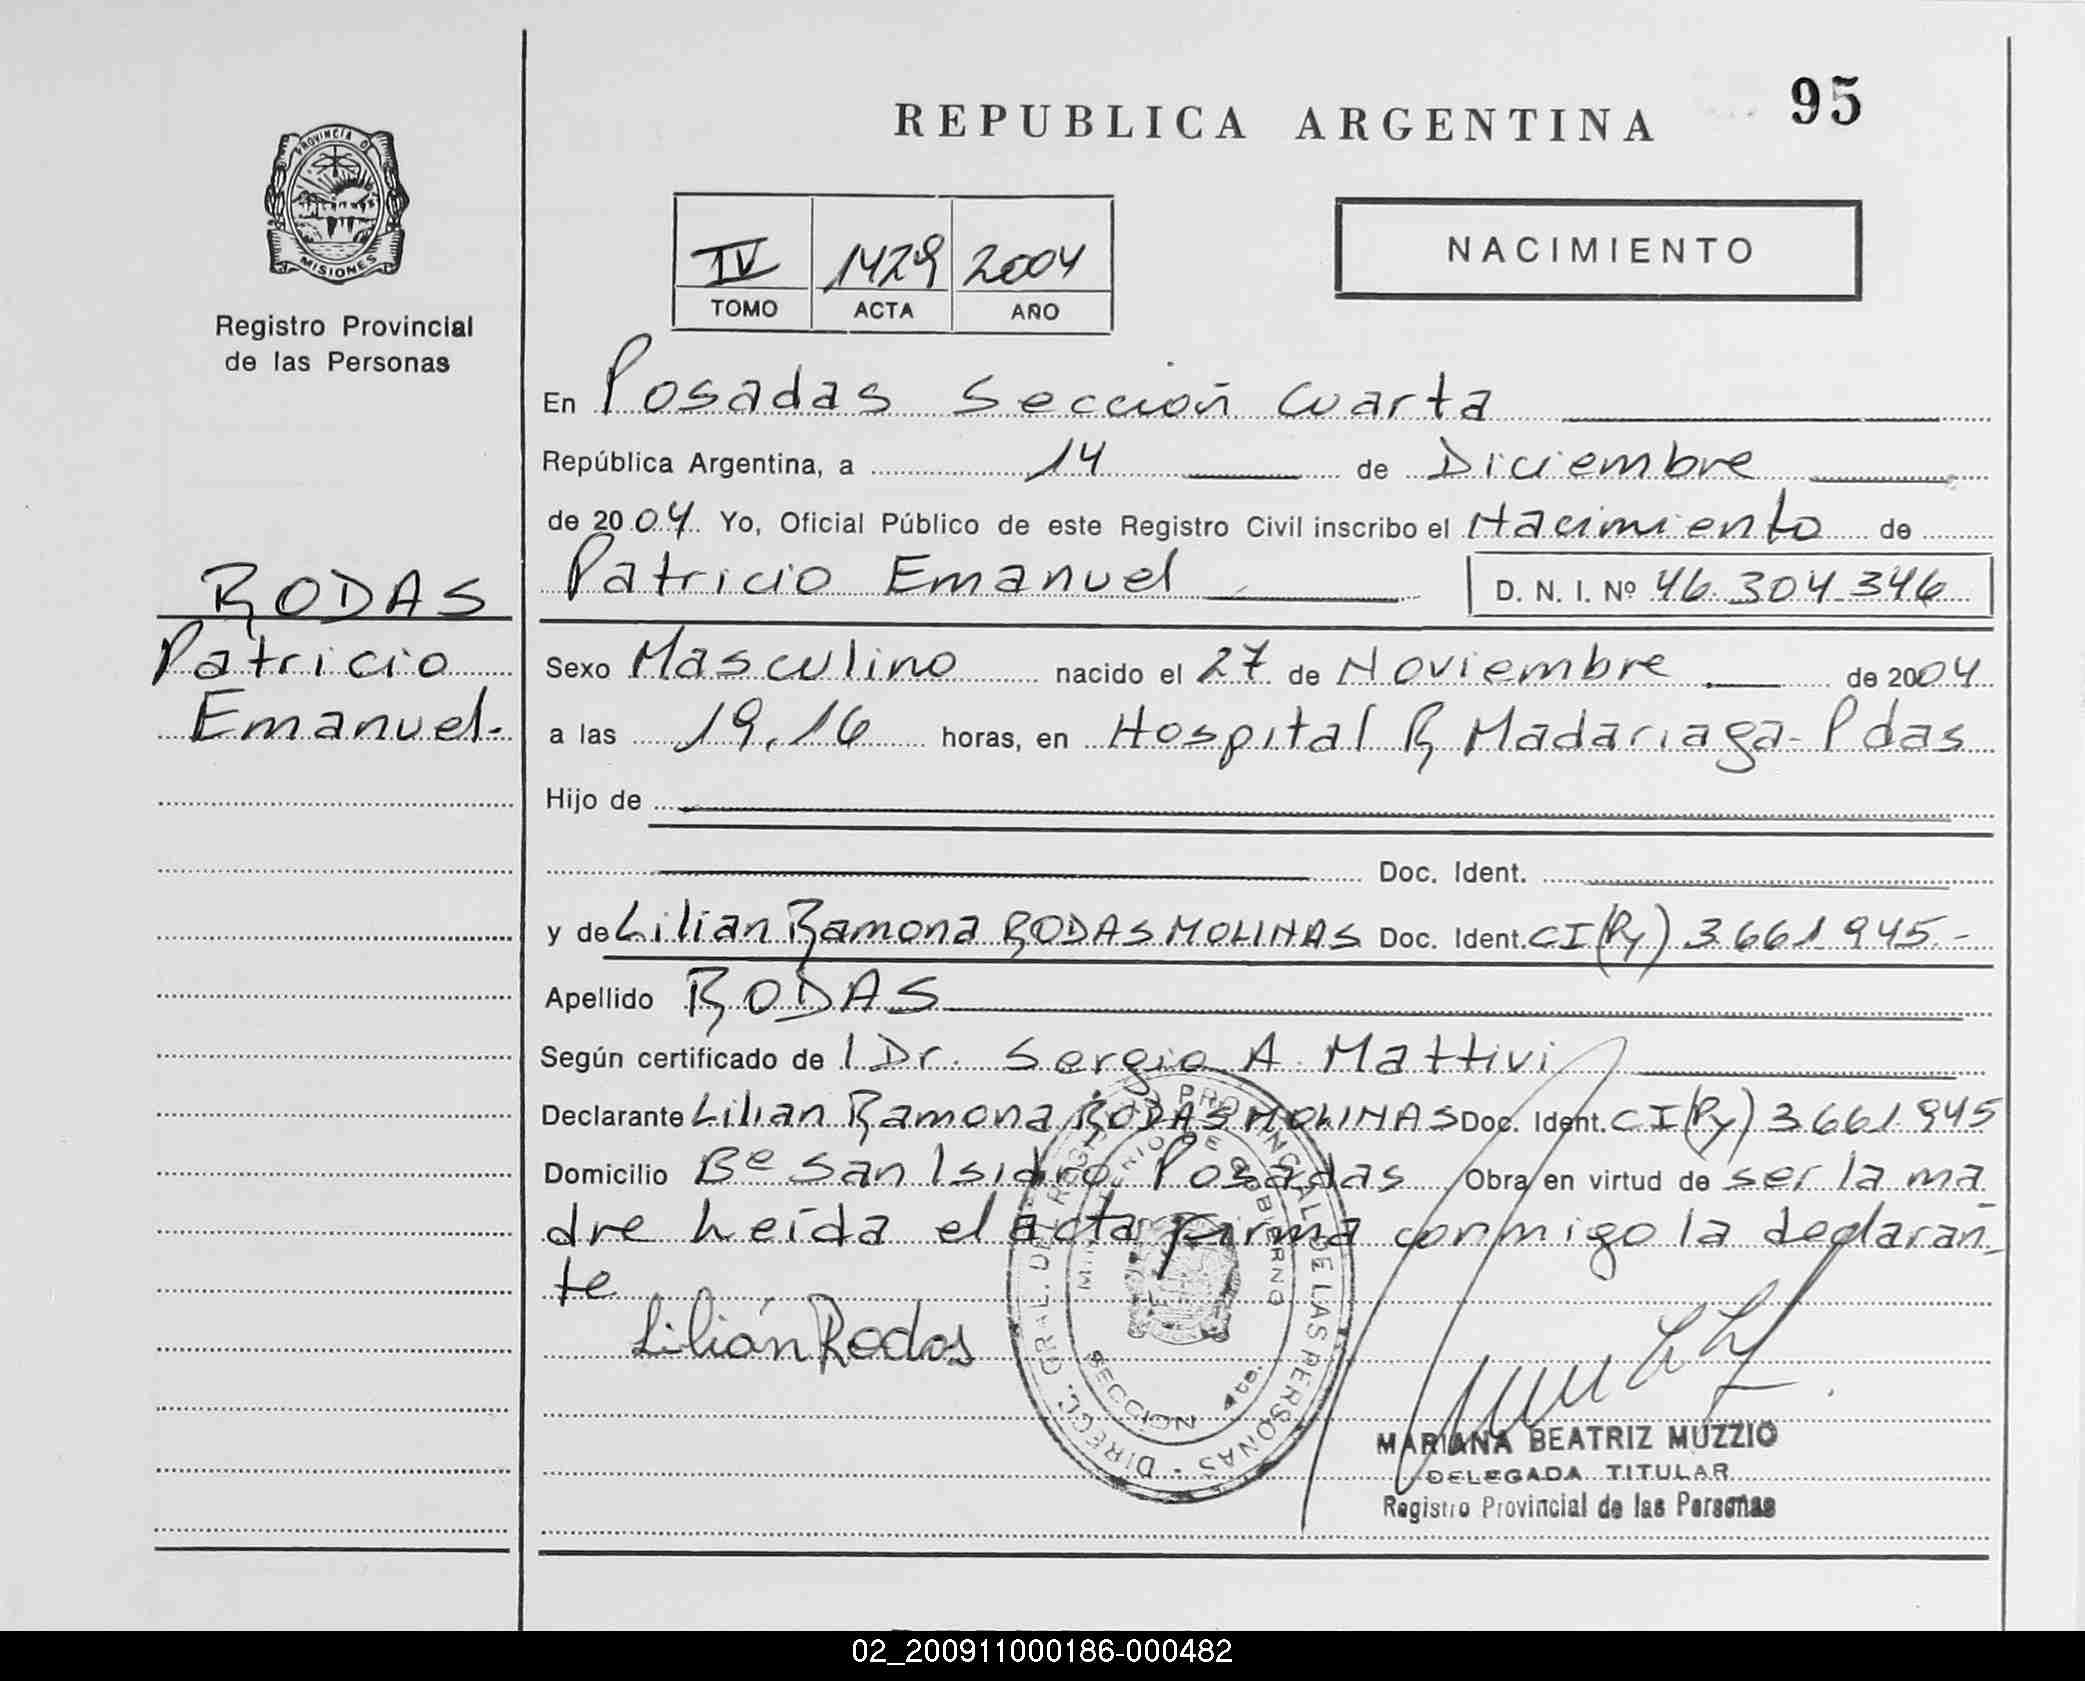 REPUBLICA ARGENTINA
95
PROVINCIA D
MISIONES
Registro Provincial
de las Personas
IV 1429 2004
TOMO ACTA AÑO
NACIMIENTO
En Posadas Sección Cuarta
República Argentina, a 14 de Diciembre
de 2004 Yo, Oficial Público de este Registro Civil inscribo el Nacimiento de
Patricio Emanuel D. N. I. Nº 46.304.346
RODAS
Patricio
Emanuel.-
Sexo Masculino nacido el 27 de Noviembre de 2004
a las 19,16 horas, en Hospital R Madariaga-Pdas
Hijo de
Doc. Ident.
y de Lilian Ramona RODAS MOLINAS Doc. Ident. CI(Py) 3661945.-
Apellido RODAS
Según certificado de l Dr. Sergio A. Mattivi
Declarante Lilian Ramona RODAS MOLINAS Doc. Ident. CI(Py) 3661945
Domicilio Bº San Isidro. Posadas Obra en virtud de ser la ma
dre Leída el acta firma conmigo la declaran_
te
Lilián Rodas
DIRECC. GRAL. DEL REGISTRO PROVINCIAL DE LAS PERSONAS
MINISTERIO DE GOBIERNO
SECCION 4ta.
MARIANA BEATRIZ MUZZIO
DELEGADA TITULAR
Registro Provincial de las Personas
02_200911000186-000482